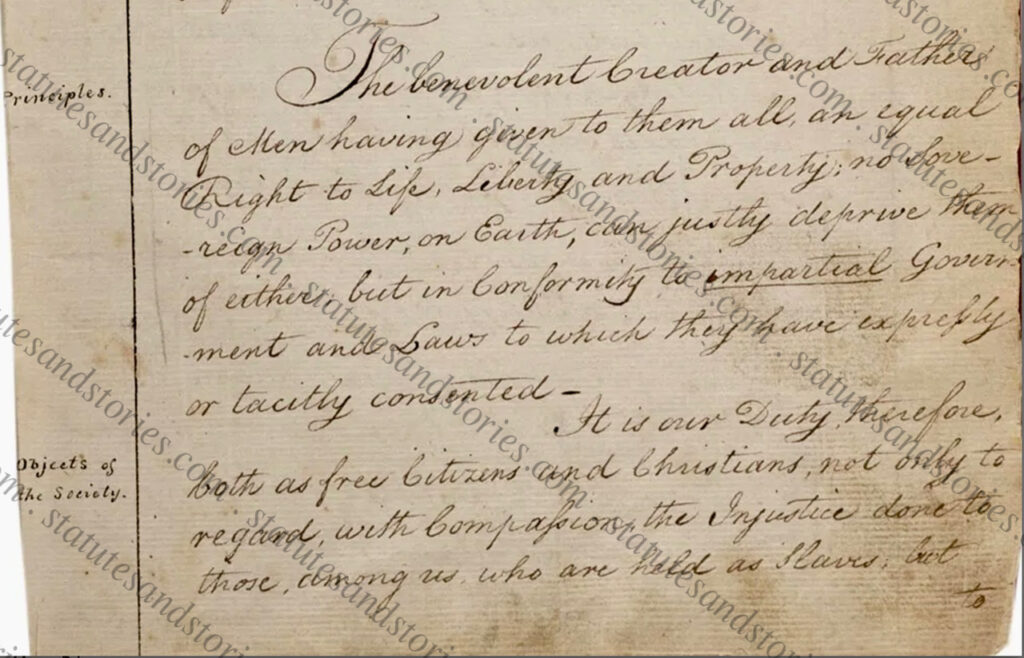 Principles.
The benevolent Creator and Father
of Men having given to them all, an equal
Right to Life, Liberty and Property; no Sove-
-reign Power, on Earth, can justly deprive them
of either, but in Conformity to impartial Govern-
-ment and Laws to which they have expressly
or tacitly consented -
It is our Duty, therefore,
Objects of
the Society.
both as free Citizens and Christians, not only to
regard, with Compassion, the Injustice done to
those, among us, who are held as Slaves, but
to
statutesandstories.com